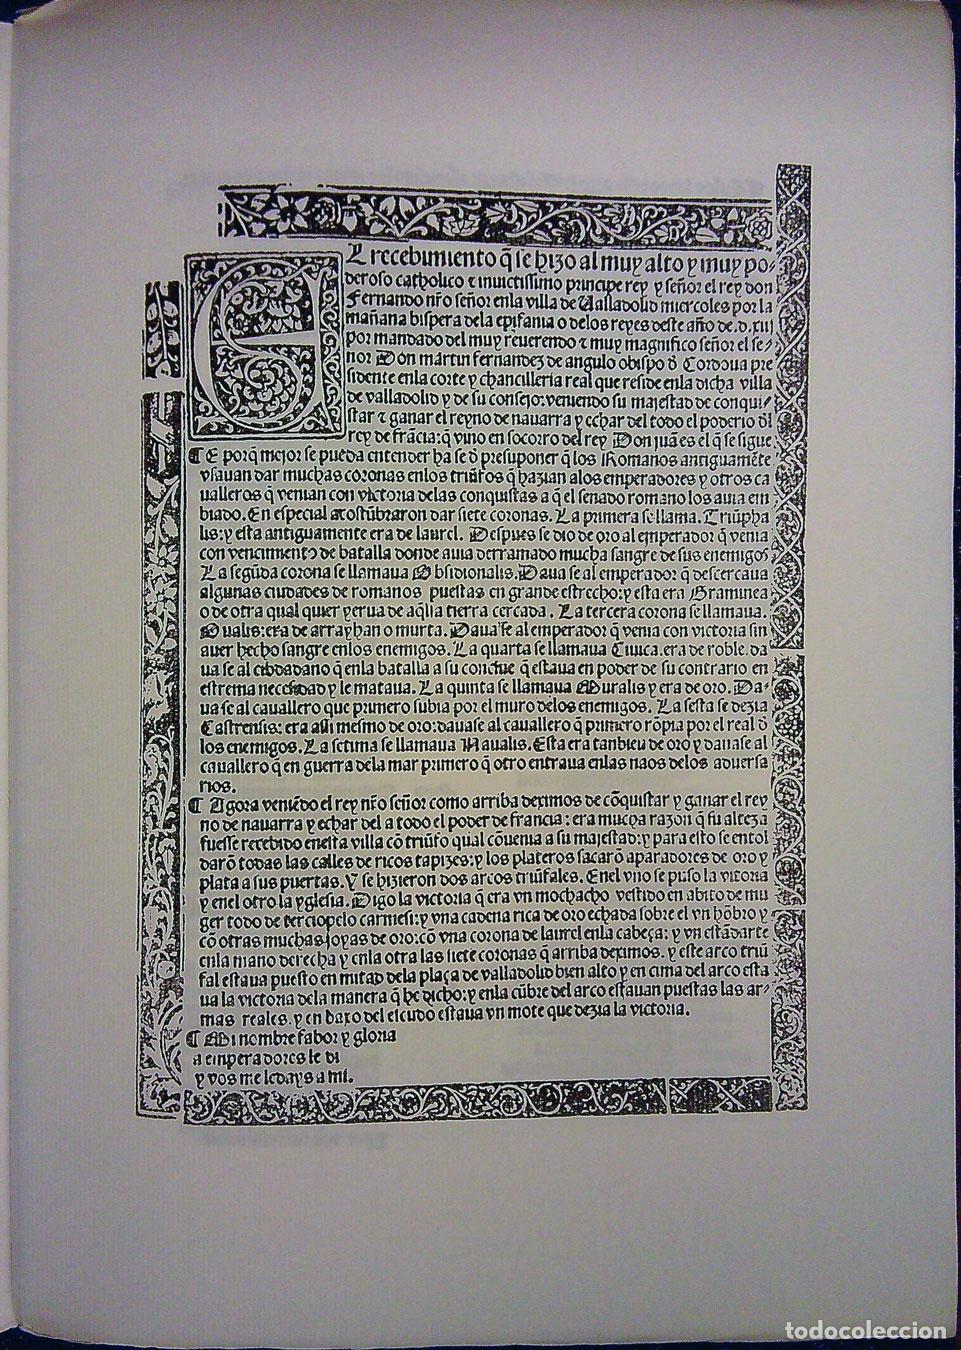 EL recebimiento q̃ se hizo al muy alto y muy po-
deroso catholico ⁊ inuictissimo principe rey y señor el rey don
Fernando nr̃o señor enla villa de Ualladolid miercoles por la
mañana bispera dela epifania o delos reyes deste año de .d.xiij
por mandado del muy reuerendo ⁊ muy magnifico señor el se-
ñor Don martin fernandez de angulo obispo d̃ Cordoua pre
sidente enla corte y chancilleria real que reside enla dicha villa
de valladolid y de su consejo: veniendo su majestad de conqui-
star ⁊ ganar el reyno de nauarra y echar del todo el poderio d̃l
rey de frãcia: q̃ vino en socorro del rey Don juã es el q̃ se sigue
¶ E porq̃ mejor se pueda entender ha se d̃ presuponer q̃ los Romanos antiguamẽte
vsauan dar muchas coronas enlos triũfos q̃ hazian alos emperadores y otros ca
ualleros q̃ venian con victoria delas conquistas a q̃ el senado romano los auia em
biado. En especial acostũbraron dar siete coronas. La primera se llama. Triũpha
lis: y esta antiguamente era de laurel. Despues se dio de oro al emperador q̃ venia
con vencimiento de batalla donde auia derramado mucha sangre de sus enemigos
La segũda corona se llamaua Obsidionalis. Daua se al emperador q̃ descercaua
algunas ciudades de romanos puestas en grande estrecho: y esta era Graminea
o de otra qual quier yerua de aq̃lla tierra cercada. La tercera corona se llamaua.
Oualis: era de arrayhan o murta. Daua se al emperador q̃ venia con victoria sin
auer hecho sangre enlos enemigos. La quarta se llamaua Ciuica. era de roble. da
ua se al cibdadano q̃ enla batalla a su q̃ estaua en poder de su contrario en
estrema necesidad y le mataua. La quinta se llamaua Muralis y era de oro. Da-
ua se al cauallero que primero subia por el muro delos enemigos. La sesta se dezia
Castrensis: era assi mesmo de oro: dauase al cauallero q̃ primero rõpia por el real d̃
los enemigos. La setima se llamaua Naualis. Esta era tanbien de oro y dauase al
cauallero q̃ en guerra dela mar primero q̃ otro entraua enlas naos delos aduersa
rios.
¶ Agora veniẽdo el rey nr̃o señor como arriba deximos de cõquistar y ganar el rey
no de nauarra y echar del a todo el poder de francia: era mucha razon q̃ su altezã
fuesse recebido enesta villa cõ triũfo qual cõuenia a su majestad: y para esto se entol
darõ todas las calles de ricos tapizes: y los plateros sacarõ aparadores de oro y
plata a sus puertas. Y se hizieron dos arcos triũfales. Enel vno se puso la vitoria
y enel otro la yglesia. Digo la victoria q̃ era vn mochacho vestido en abito de mu
ger todo de terciopelo carmesi: y vna cadena rica de oro echada sobre el vn hõbro y
cõ otras muchas joyas de oro: cõ vna corona de laurel enla cabeça: y vn estãdarte
enla mano derecha y enla otra las siete coronas q̃ arriba deximos. y este arco triũ
fal estaua puesto en mitad dela plaça de valladolid bien alto y en cima del arco esta
ua la victoria dela manera q̃ he dicho: y enla cũbre del arco estauan puestas las ar-
mas reales. y en baxo del escudo estaua vn mote que dezia la victoria.
¶ Mi nombre fabor y gloria
a emperadores le di
y vos me le days a mi.
todocoleccion